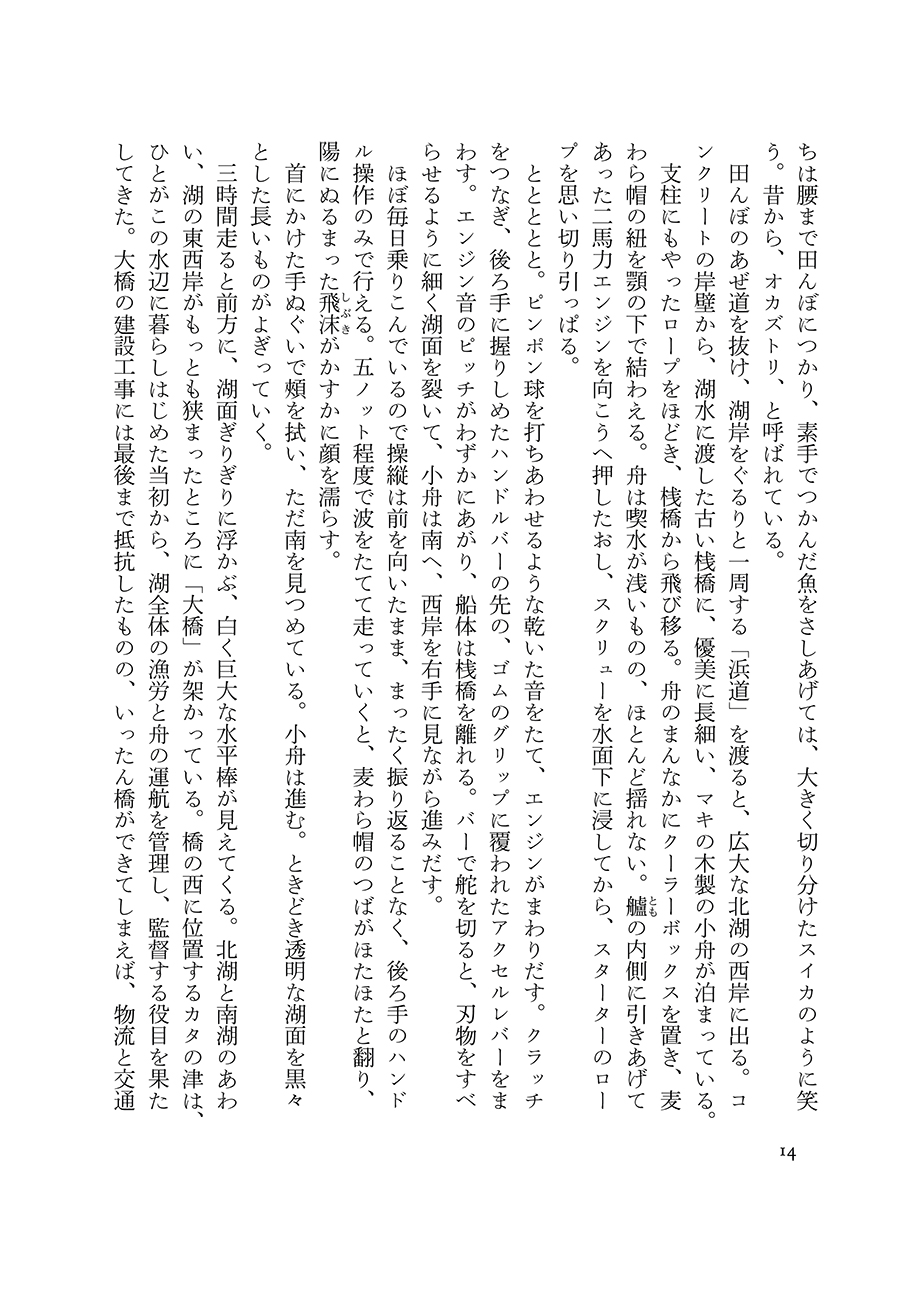 ちは腰まで田んぼにつかり、素手でつかんだ魚をさしあげては、大きく切り分けたスイカのように笑
う。昔から、オカズトリ、と呼ばれている。
　田んぼのあぜ道を抜け、湖岸をぐるりと一周する「浜道」を渡ると、広大な北湖の西岸に出る。コ
ンクリートの岸壁から、湖水に渡した古い桟橋に、優美に長細い、マキの木製の小舟が泊まっている。
　支柱にもやったロープをほどき、桟橋から飛び移る。舟のまんなかにクーラーボックスを置き、麦
わら帽の紐を顎の下で結わえる。舟は喫水が浅いものの、ほとんど揺れない。艫の内側に引きあげて
とも
あった二馬力エンジンを向こうへ押したおし、スクリューを水面下に浸してから、スターターのロー
プを思い切り引っぱる。
　とととととと。ピンポン球を打ちあわせるような乾いた音をたて、エンジンがまわりだす。クラッチ
をつなぎ、後ろ手に握りしめたハンドルバーの先の、ゴムのグリップに覆われたアクセルレバーをま
わす。エンジン音のピッチがわずかにあがり、船体は桟橋を離れる。バーで舵を切ると、刃物をすべ
らせるように細く湖面を裂いて、小舟は南へ、西岸を右手に見ながら進みだす。
　ほぼ毎日乗りこんでいるので操縦は前を向いたまま、まったく振り返ることなく、後ろ手のハンド
ル操作のみで行える。五ノット程度で波をたてて走っていくと、麦わら帽のつばがほたほたと翻り、
陽にぬるまった飛沫がかすかに顔を濡らす。
しぶき
　首にかけた手ぬぐいで頬を拭い、ただ南を見つめている。小舟は進む。ときどき透明な湖面を黒々
とした長いものがよぎっていく。
　三時間走ると前方に、湖面ぎりぎりに浮かぶ、白く巨大な水平棒が見えてくる。北湖と南湖のあわ
い、湖の東西岸がもっとも狭まったところに「大橋」が架かっている。橋の西に位置するカタの津は、
ひとがこの水辺に暮らしはじめた当初から、湖全体の漁労と舟の運航を管理し、監督する役目を果た
してきた。大橋の建設工事には最後まで抵抗したものの、いったん橋ができてしまえば、物流と交通
14